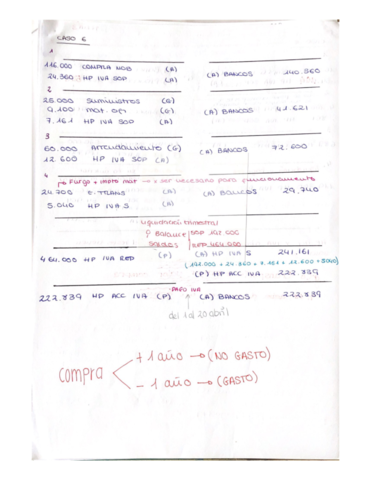 CASO 6
1
116.000 COMPRA MOB (A)
24.360 HP IVA SOP (A) (A) BANCOS 140.360
2
25.000 Suministros (G)
9.100 mat. of. (G) (A) BANCOS 41.621
7.161 HP IVA SOP (A)
3
60.000 Arrendamiento (G) (A) BANCOS 72.600
12.600 HP IVA SOP (A)
4
Furgo + impto mat → ser necesario para funcionamiento
24.700 E. TRANS (A) (A) BANCOS 29.740
5.040 HP IVA S (A)
Liquidación trimestral
BALANCE SOP 192.000
SALDOS REP 464.000
464.000 HP IVA REP (P) (A) HP IVA S 241.161
(192.000 + 24.360 + 7.161 + 12.600 + 5040)
(P) HP ACC IVA 222.839
PAGO IVA
222.839 HP ACC IVA (P) (A) BANCOS 222.839
del 1 al 20 abril
compra
+ 1 año → (NO GASTO)
- 1 año → (GASTO)